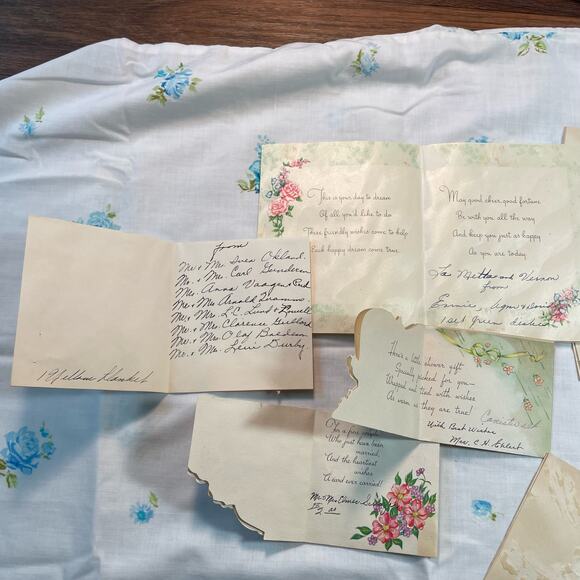 This is your day to dream
Of all you'd like to do
These friendly wishes come to help
Each happy dream come true.
May good cheer, good fortune
Be with you all the way
And keep you just as happy
As you are today
To Metta and Vernon
from
1 set green dishes
from
Mr. & Mrs. Sven Okland.
Mr. & Mrs. Carl
Mrs. Anna
Mr. & Mrs. Arnold
Mr. & Mrs. L.C. Lund & Lowell
Mr. & Mrs. Clarence
Mr. & Mrs. Olaf
Mr. & Mrs. Levi Durby
1 Yellow Blanket
Here's a little shower gift
Specially picked for you—
Wrapped and tied with wishes
As warm as they are true!
With Best Wishes
Mrs. C. H. Ehlert
For a fine couple
Who just have been
married,
And the heartiest
wishes
A card ever carried!
Mr & Mrs Elmer